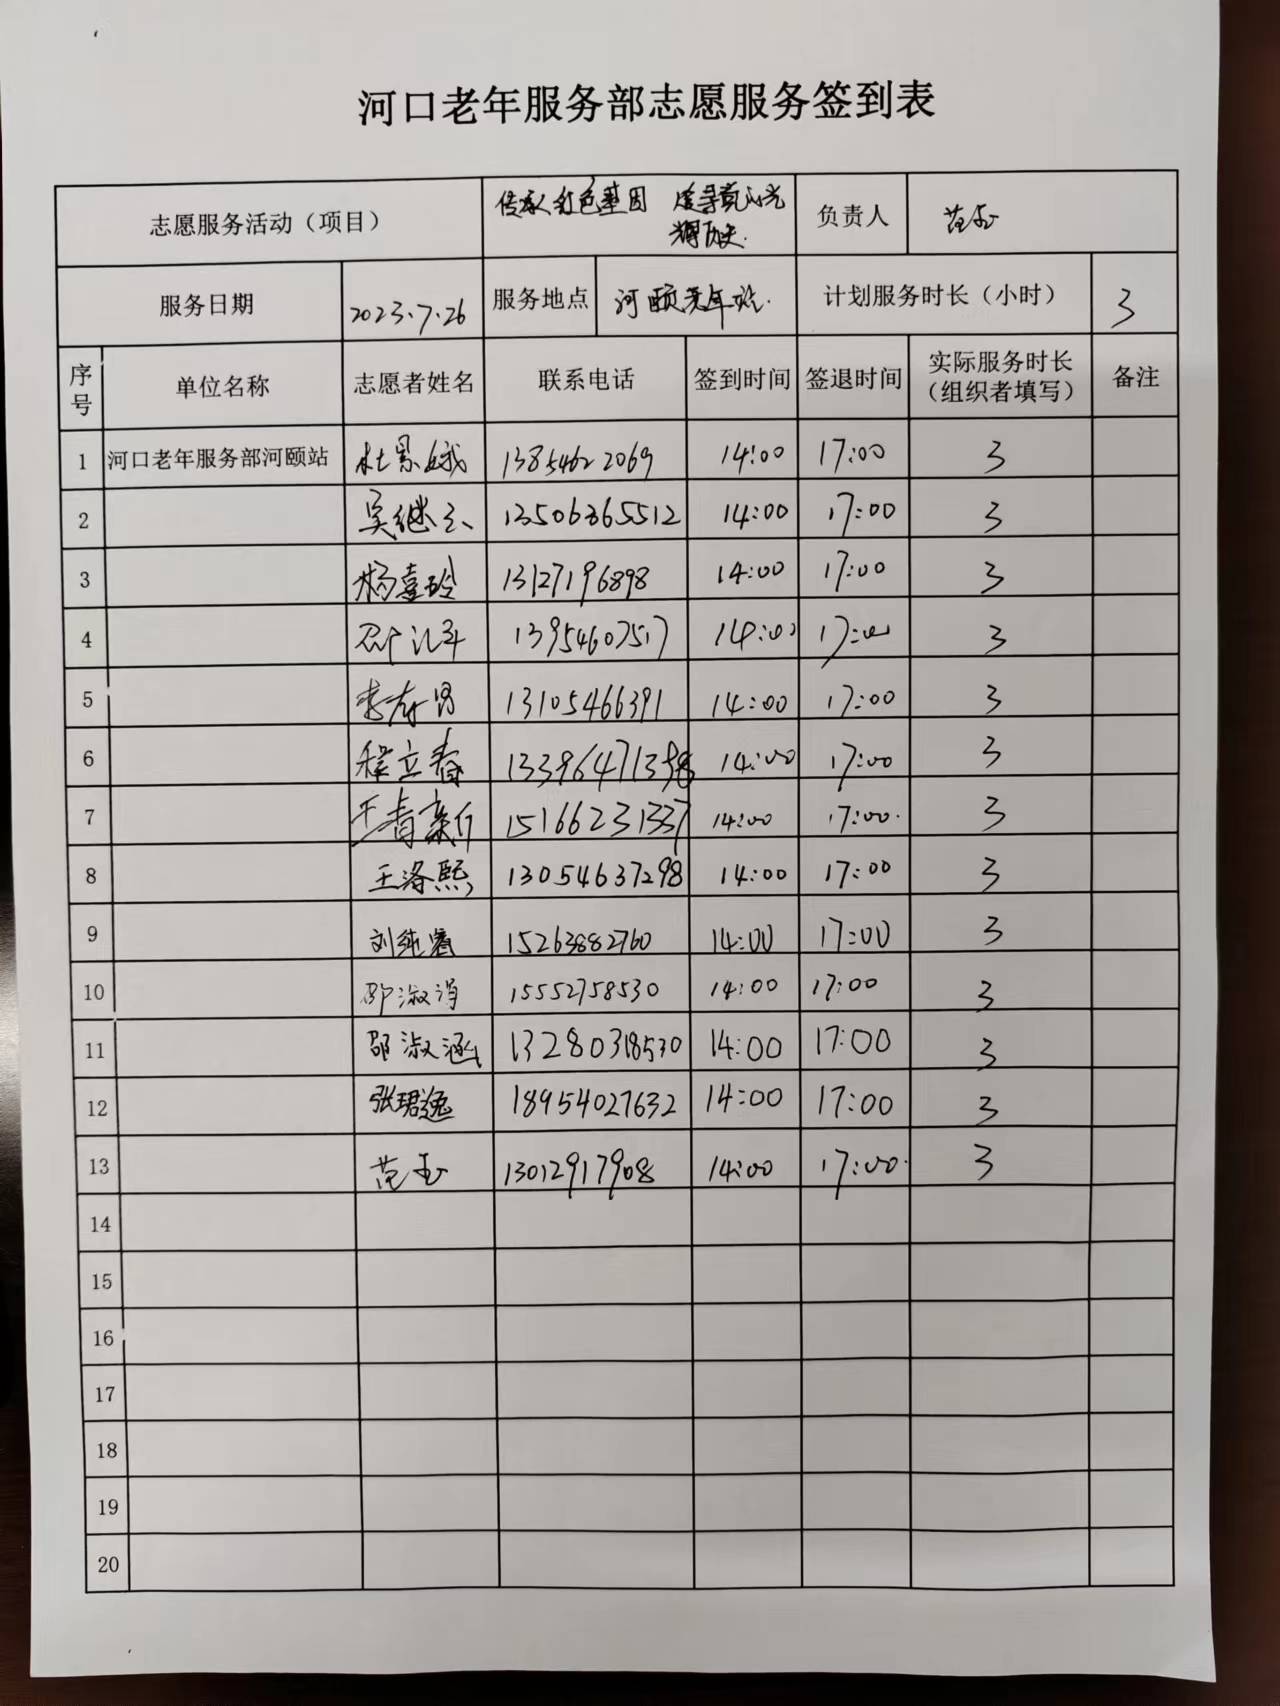 河口老年服务部志愿服务签到表
志愿服务活动（项目） 传承红色基因 辉历史 负责人 范玉
服务日期 2023.7.26 服务地点 河颐老年站. 计划服务时长（小时） 3
序号 单位名称 志愿者姓名 联系电话 签到时间 签退时间 实际服务时长（组织者填写） 备注
1 河口老年服务部河颐站 杜景娥 13854622069 14:00 17:00 3
2 吴继云 13506365512 14:00 17:00 3
3 杨喜玲 13127196898 14:00 17:00 3
4 13954607517 14:00 17:00 3
5 李存贤 13105466391 14:00 17:00 3
6 程立春 14:00 17:00 3
7 15166231337 14:00 17:00. 3
8 王洛熙 13054637298 14:00 17:00 3
9 刘纯睿 15263882760 14:00 17:00 3
10 邵淑涓 15552758530 14:00 17:00 3
11 邵淑涵 13280318530 14:00 17:00 3
12 张珺逸 18954027632 14:00 17:00 3
13 范玉 13012917908 14:00 17:00. 3
14
15
16
17
18
19
20